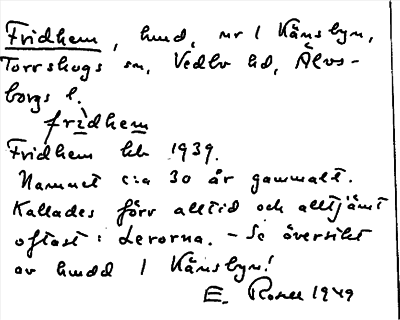 Fridhem, hmd, nr 1 Känsbyn,
Torrskogs sn, Vedbo hd, Älvs-
borgs l.
fridhem
Fridhem hk 1939.
Namnet c:a 30 år gammalt.
Kallades förr alltid och alltjämt
oftast: Lerorna. - Se översikt
av hmdd 1 Känsbyn!
E. Rosell 1949